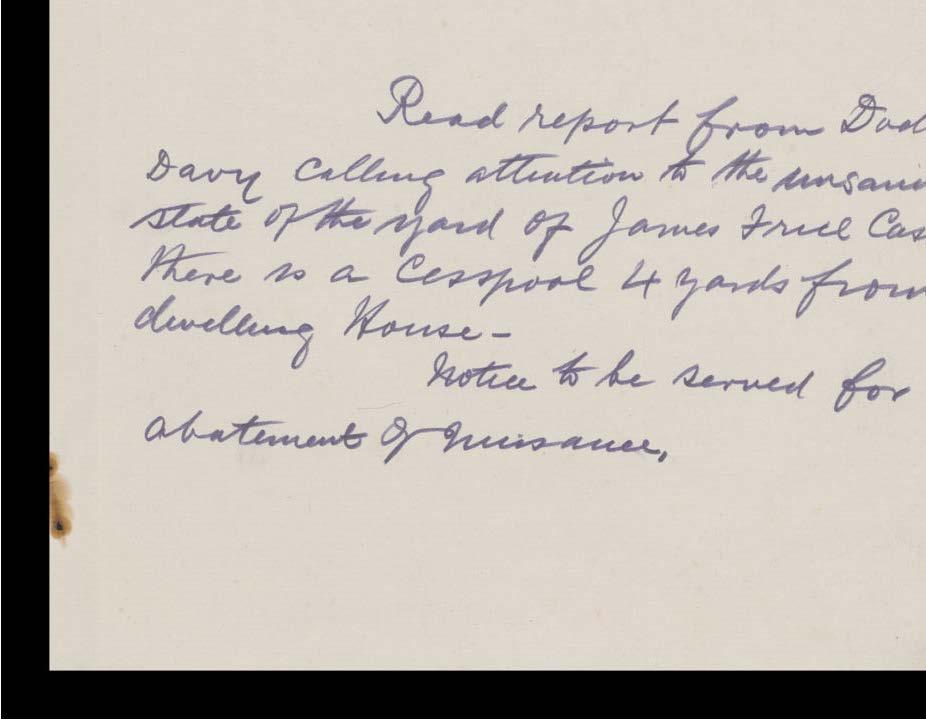 Read report from
Davy calling attention to the
state of the yard of James Friel
there is a Cesspool 4 yards from
dwelling House -
Notice to be served for
abatement of Nuisance.